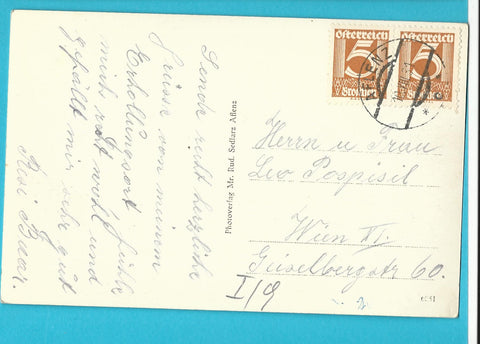 Sende recht herzliche
Grüsse von meinem
Erholungsort fühle
mich recht wohl und
gefällt mir sehr gut
Resi Baar
Photoverlag Mr. Rud. Sedlarz Aflenz
Österreich
5
Groschen
Österreich
5
Groschen
Herrn u Frau
Leo Pospisil
Wien XI.
Geiselbergstr 60.
I/9